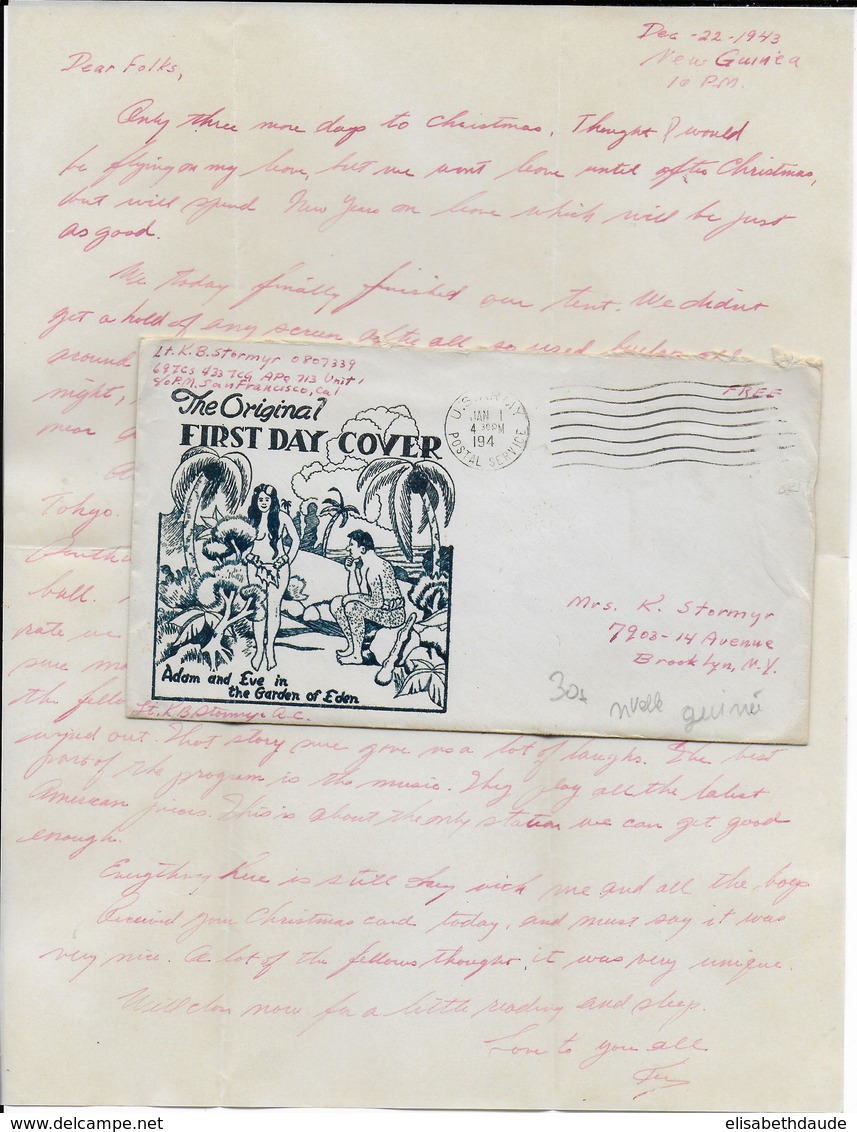 Dec-22-1943
New Guinea
10 P.M.
Dear Folks,
Only three more days to Christmas. Thought I would
be flying on my leave, but we wont leave until after Christmas,
but will spend New Years on leave which will be just
as good.
We today finally finished our tent. We didnt
get a hold of any screen after all so used burlap all
around
night,
near
Tokyo.
ball.
rate we
sure
the fellows
Lt. K.B. Stormyr 0807339
69 TCS 433 TCG APO 713 Unit 1
c/o P.M. San Francisco, Cal
FREE
The Original
FIRST DAY COVER
U.S. ARMY
JAN 1
4 30PM
194
POSTAL SERVICE
Mrs. K. Stormyr
7903-14 Avenue
Brooklyn, N.Y.
Adam and Eve in
the Garden of Eden
Lt. K.B. Stormyr A.C.
30
nvelle guinée
out. That story sure gave us a lot of laughs. The best
part of the program is the music. They play all the latest
American pieces. This is about the only station we can get good
enough.
Everything here is still okay with me and all the boys
Received your Christmas card today, and must say it was
very nice. A lot of the fellows thought it was very unique.
Will close now for a little reading and sleep.
Love to you all
elisabethdaude